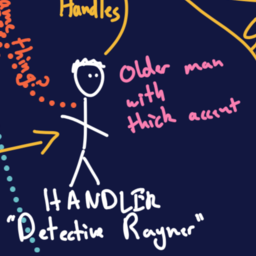 Handles
same thing?
Older man
with
thick accent
HANDLER
"Detective Rayner"